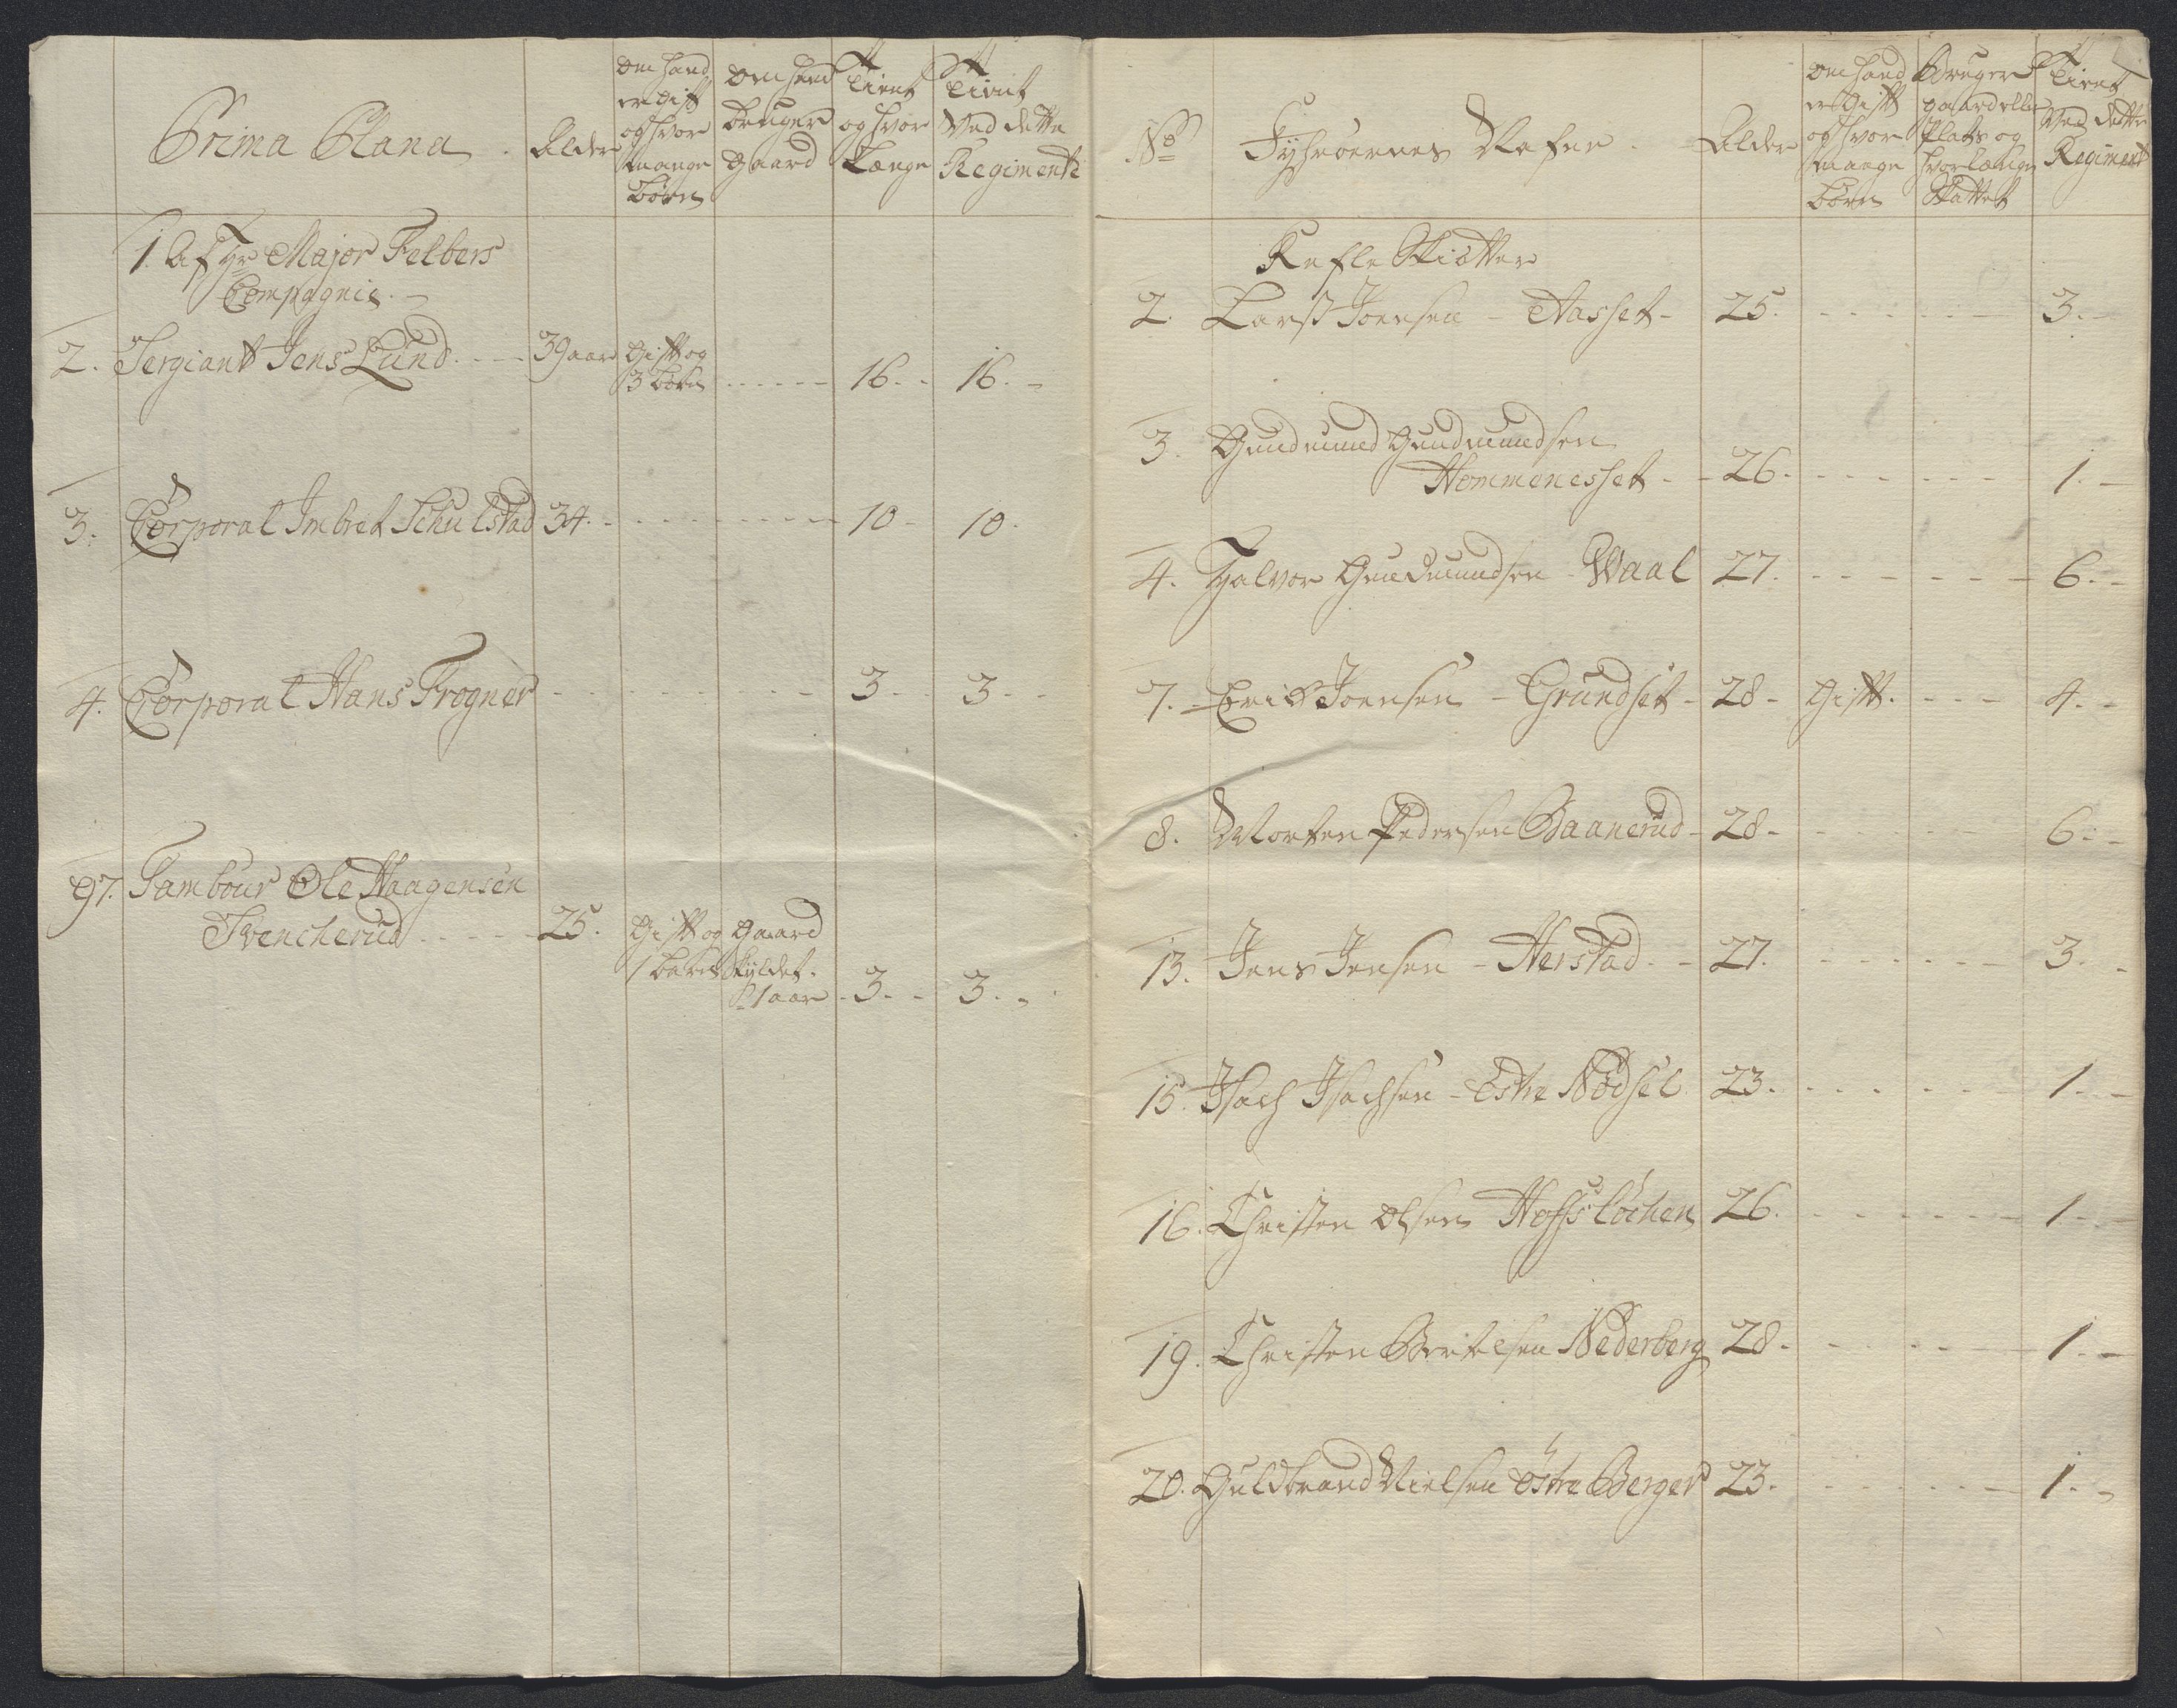 Prima Plana
Alder
om hand
er gift
og hvor
mange
børn
om hand
bruger
gaard
Tient
og hvor
Længe
Tient
Ved dette
Regimente
1. Af Hr Major Felbers
Compagnie.
2. Sergiant Jens Lund. 39 aar Gift og
3 børn 16. 16.
3. Corporal Imbret Schulstad 34. 10 10.
4. Corporal Hans Frogner 3 3
97. Tambour Ole Haagensen
Svencherud 25. Gift og Gaard
1 barn Skyldet.
1 aar 3. 3.
No
Alder
om hand
er gift
og hvor
mange
børn
Bruger
gaard eller
Plats og
hvor længe
Skattet
Tient
Ved dette
Regiment
Refle Skiøtter
2. Larss Joensen - Aasset - 25. 3.
3. Gundmund Gundmundsen
Hommenesset - 26. 1.
4. Halvor Gundmundsen - Waal 27. 6.
7. Erik Joensen - Grundset - 28 - Gift. 4.
8. Morten Pedersen Baanerud - 28 - 6.
13. Jens Jensen - Herstad - 27. 3.
15. Isach Isachsen - Estre Nødsel 23. 1.
16. Christen Olsen Hofsløchen 26. 1.
19. Christen Bertelsen Nederberg 28. 1.
20. Guldbrand Nielsen østre Berger 23. 1.